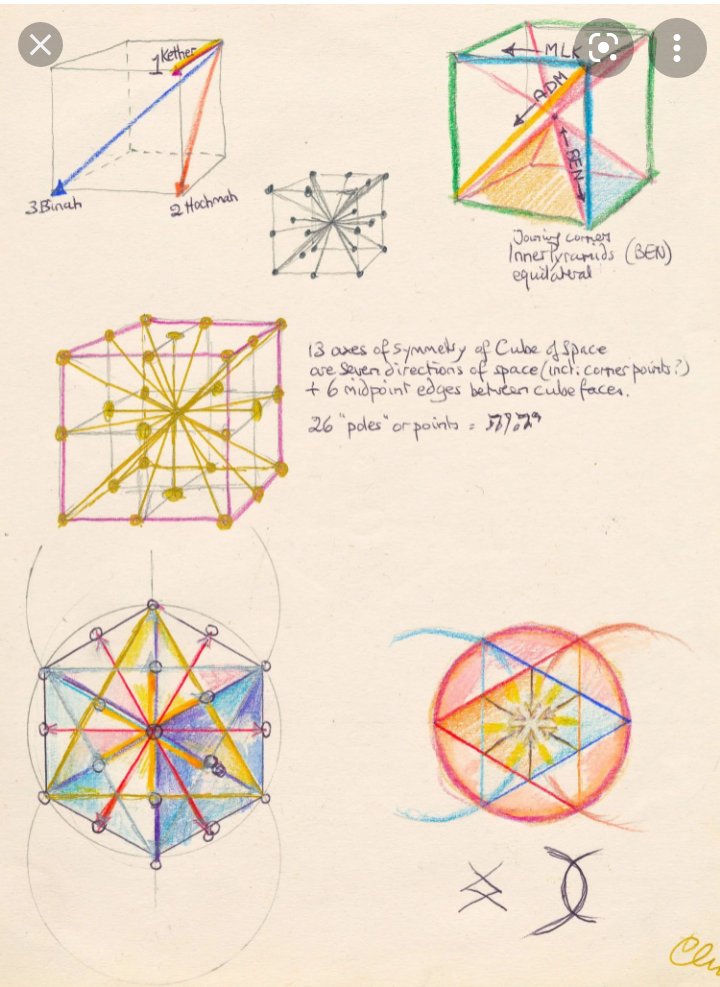 1 Kether
3 Binah
2 Hochmah
MLK
ADM
BEN
Joining corners
Inner Pyramids (BEN)
equilateral
13 axes of symmetry of Cube of Space
are Seven directions of space (incl. corner points?)
+ 6 midpoint edges between cube faces.
26 "poles" or points =